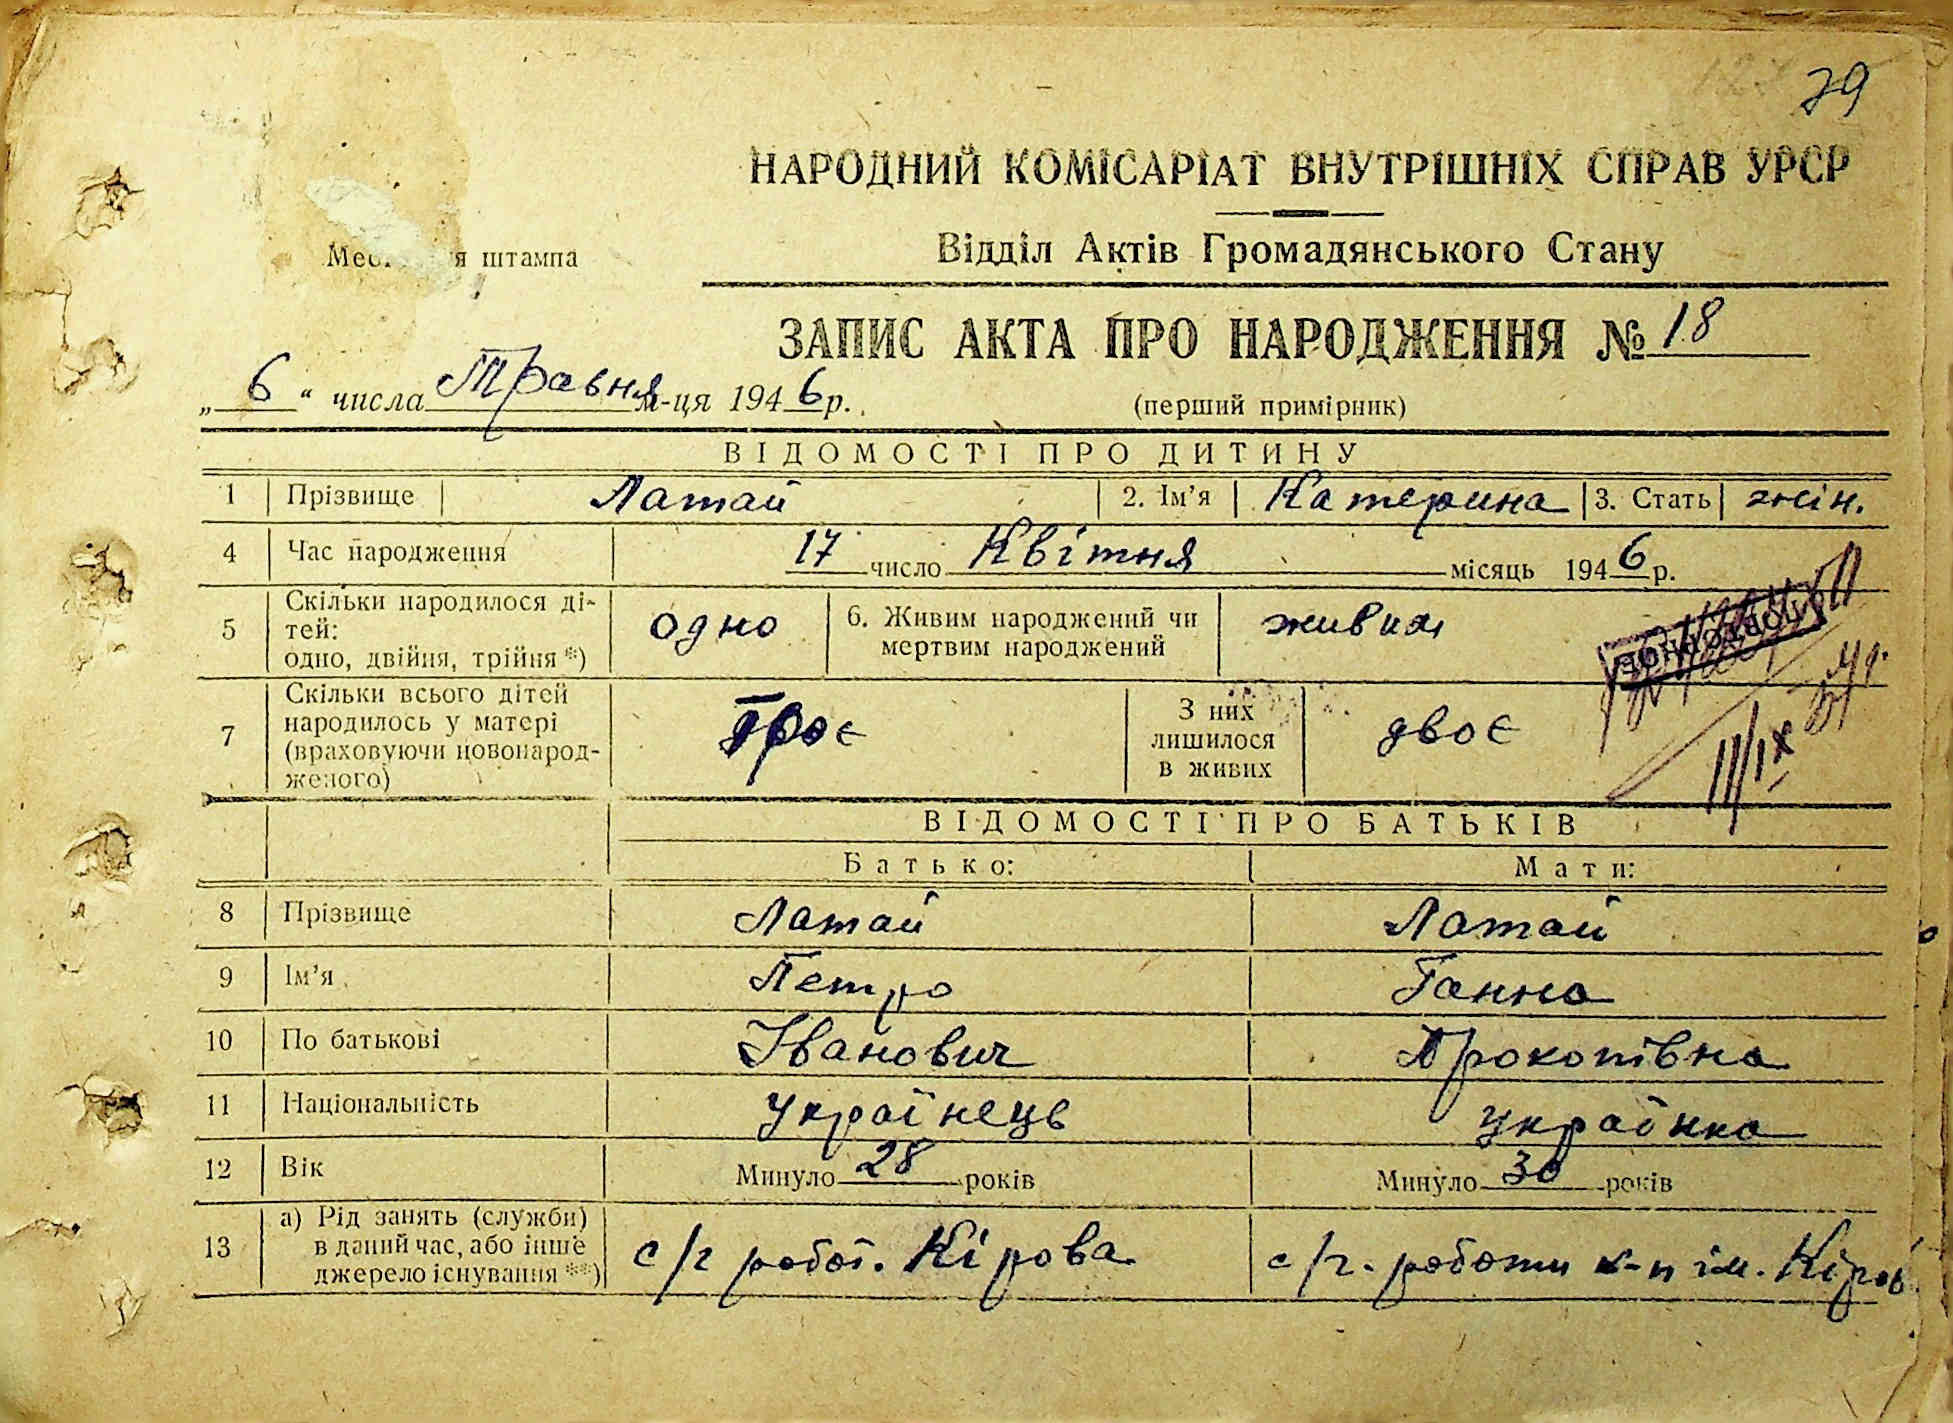 79
НАРОДНИЙ КОМІСАРІАТ ВНУТРІШНІХ СПРАВ УРСР
Відділ Актів Громадянського Стану
штампа
ЗАПИС АКТА ПРО НАРОДЖЕННЯ № 18
„6“ числа Травня м-ця 1946 р.
(перший примірник)
ВІДОМОСТІ ПРО ДИТИНУ
1 Прізвище Латай 2. Ім’я Катерина 3. Стать жін.
4 Час народження 17 число Квітня місяць 1946 р.
5 Скільки народилося ді-
тей:
одно, двійня, трійня *) одно 6. Живим народжений чи
мертвим народжений живим
7 Скільки всього дітей
народилось у матері
(враховуючи новонарод-
женого) Троє З них
лишилося
в живих двоє
ПОВТОРНОЕ
ВІДОМОСТІ ПРО БАТЬКІВ
Батько: Мати:
8 Прізвище Латай Латай
9 Ім’я Петро Ганна
10 По батькові Іванович Прокопівна
11 Національність Українець українка
12 Вік Минуло 28 років Минуло 30 років
13 а) Рід занять (служби)
в даний час, або інше
джерело існування **) с/г робот. Кірова с/г. роботи к-п ім. Кіров